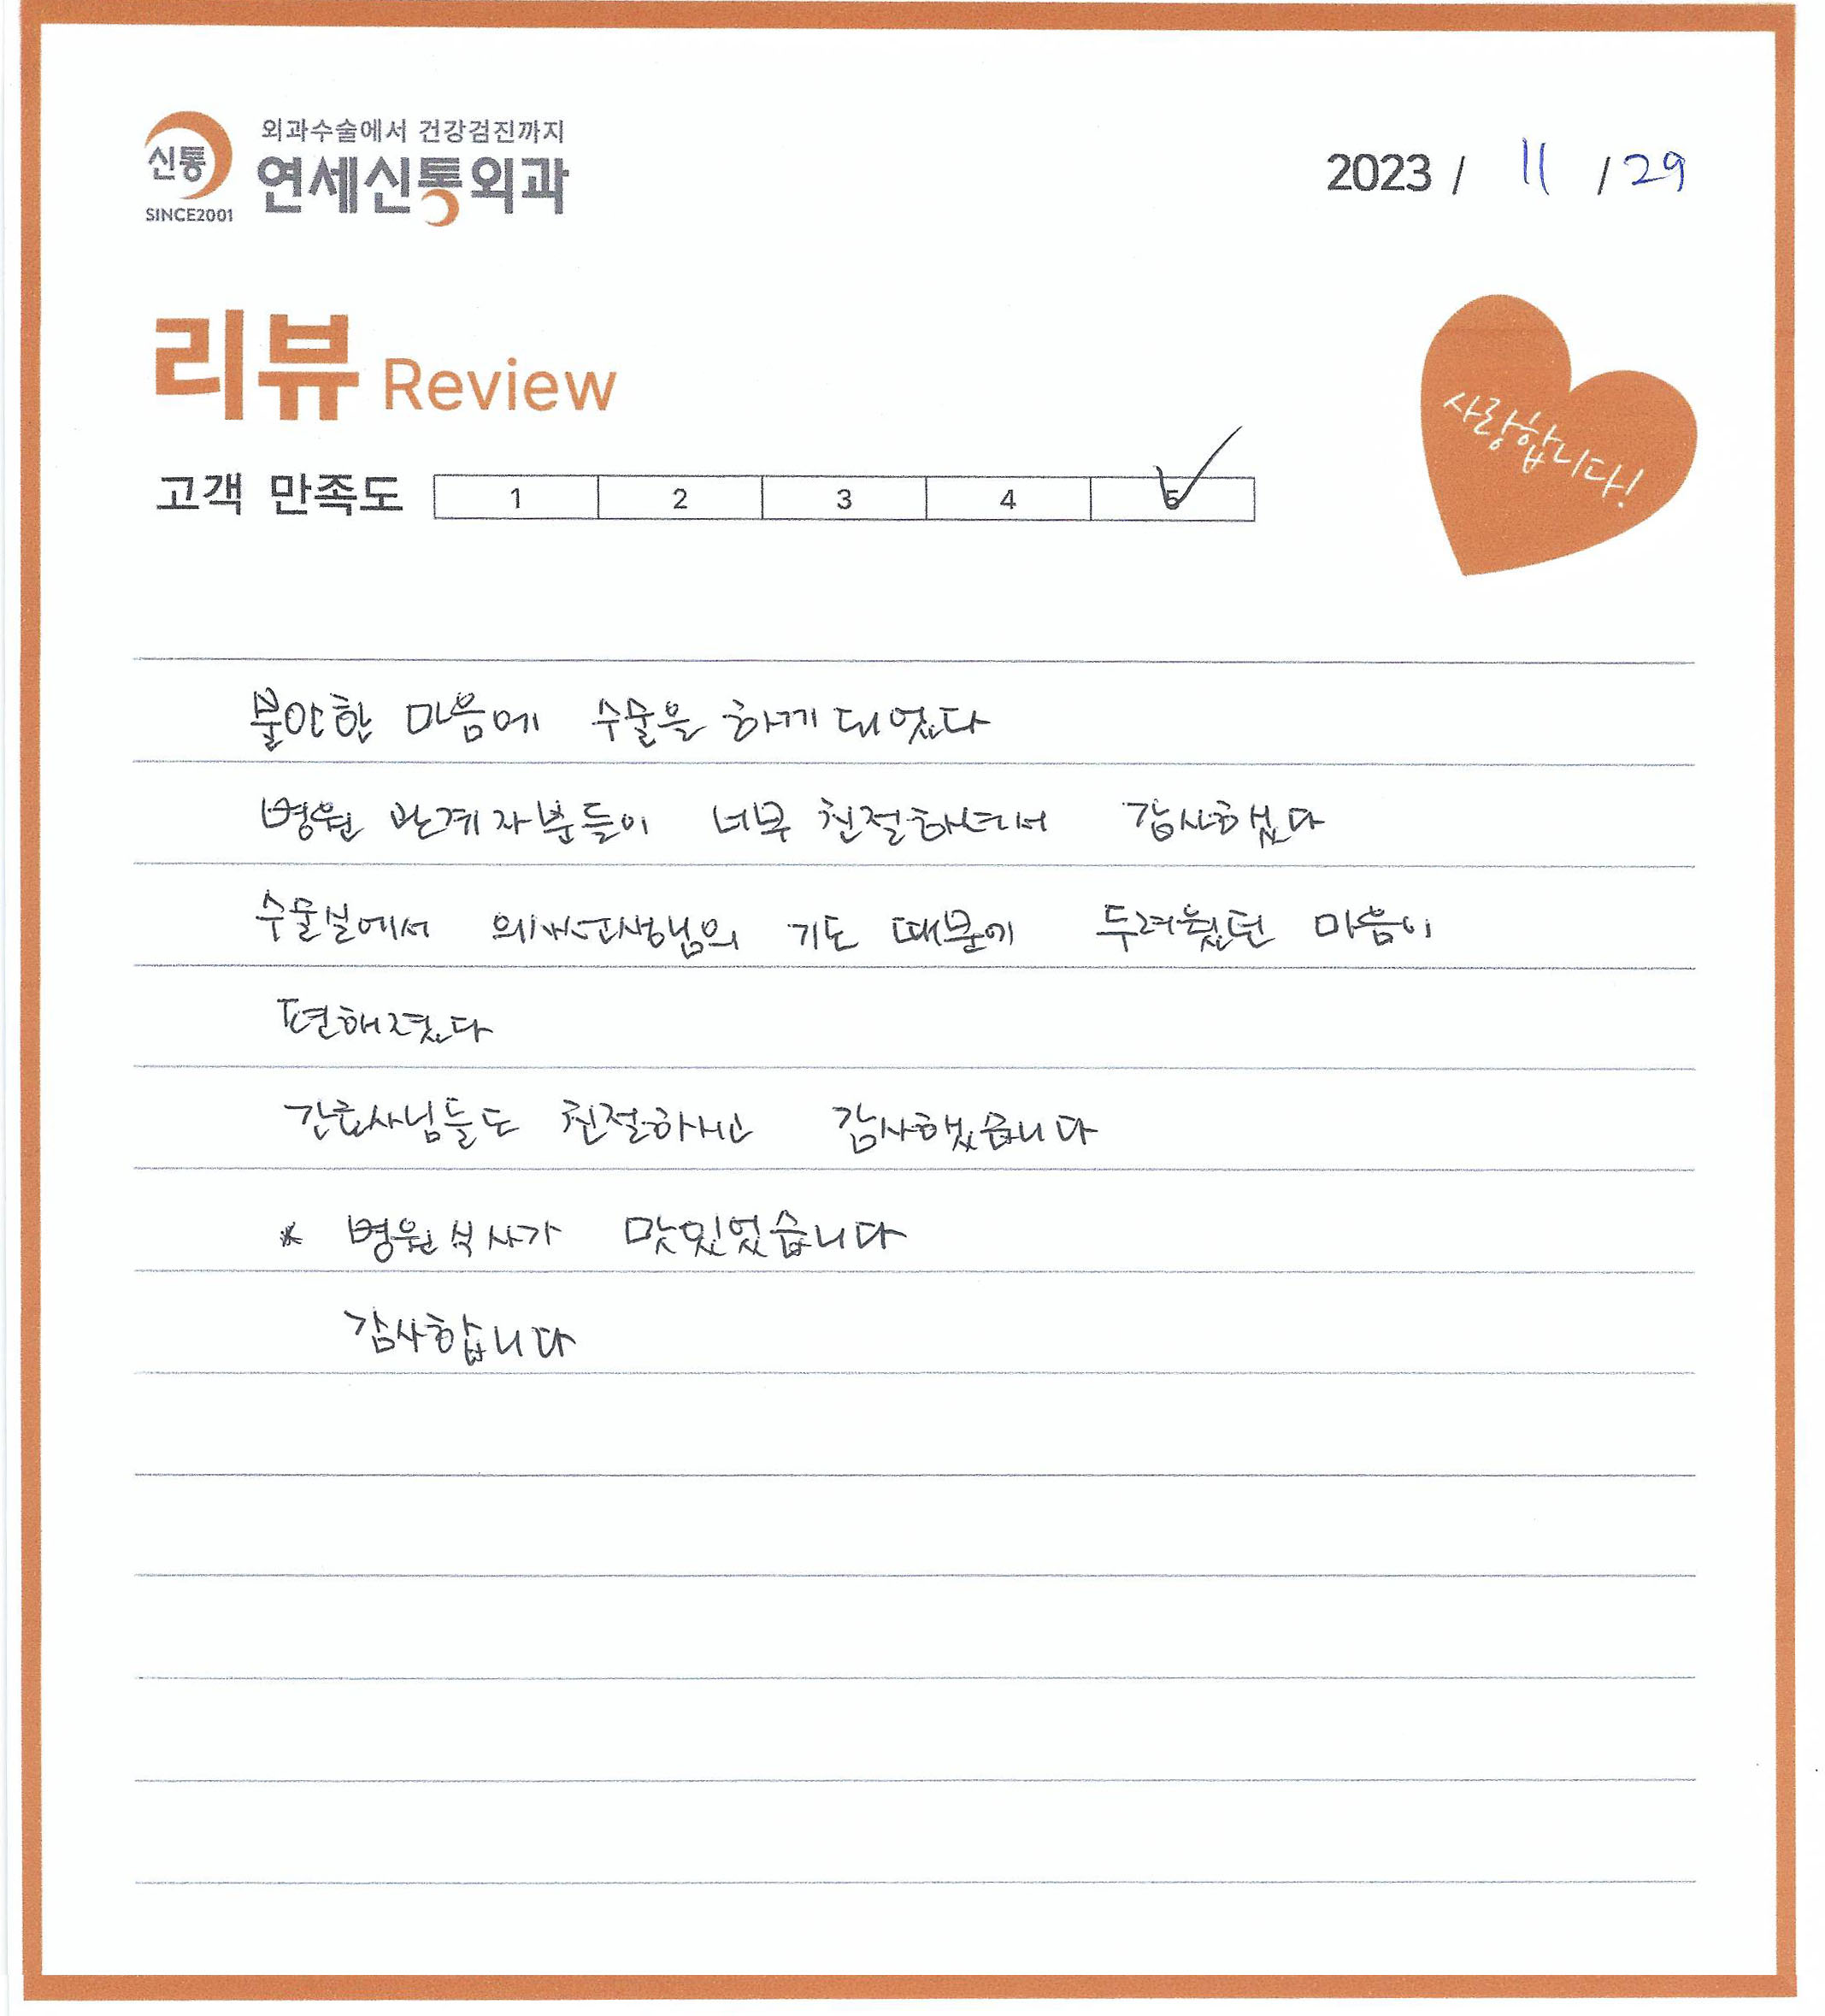 외과수술에서 건강검진까지
신통 연세신통외과
SINCE2001
2023 / 11 / 29
리뷰 Review
사랑합니다!
고객 만족도 1 2 3 4 5
불안한 마음에 수술을 하게 되었다
병원 관계자분들이 너무 친절하셔서 감사했다
수술실에서 의사선생님의 기도 때문에 두려웠던 마음이
편해졌다
간호사님들도 친절하시고 감사했습니다
* 병원식사가 맛있었습니다
감사합니다